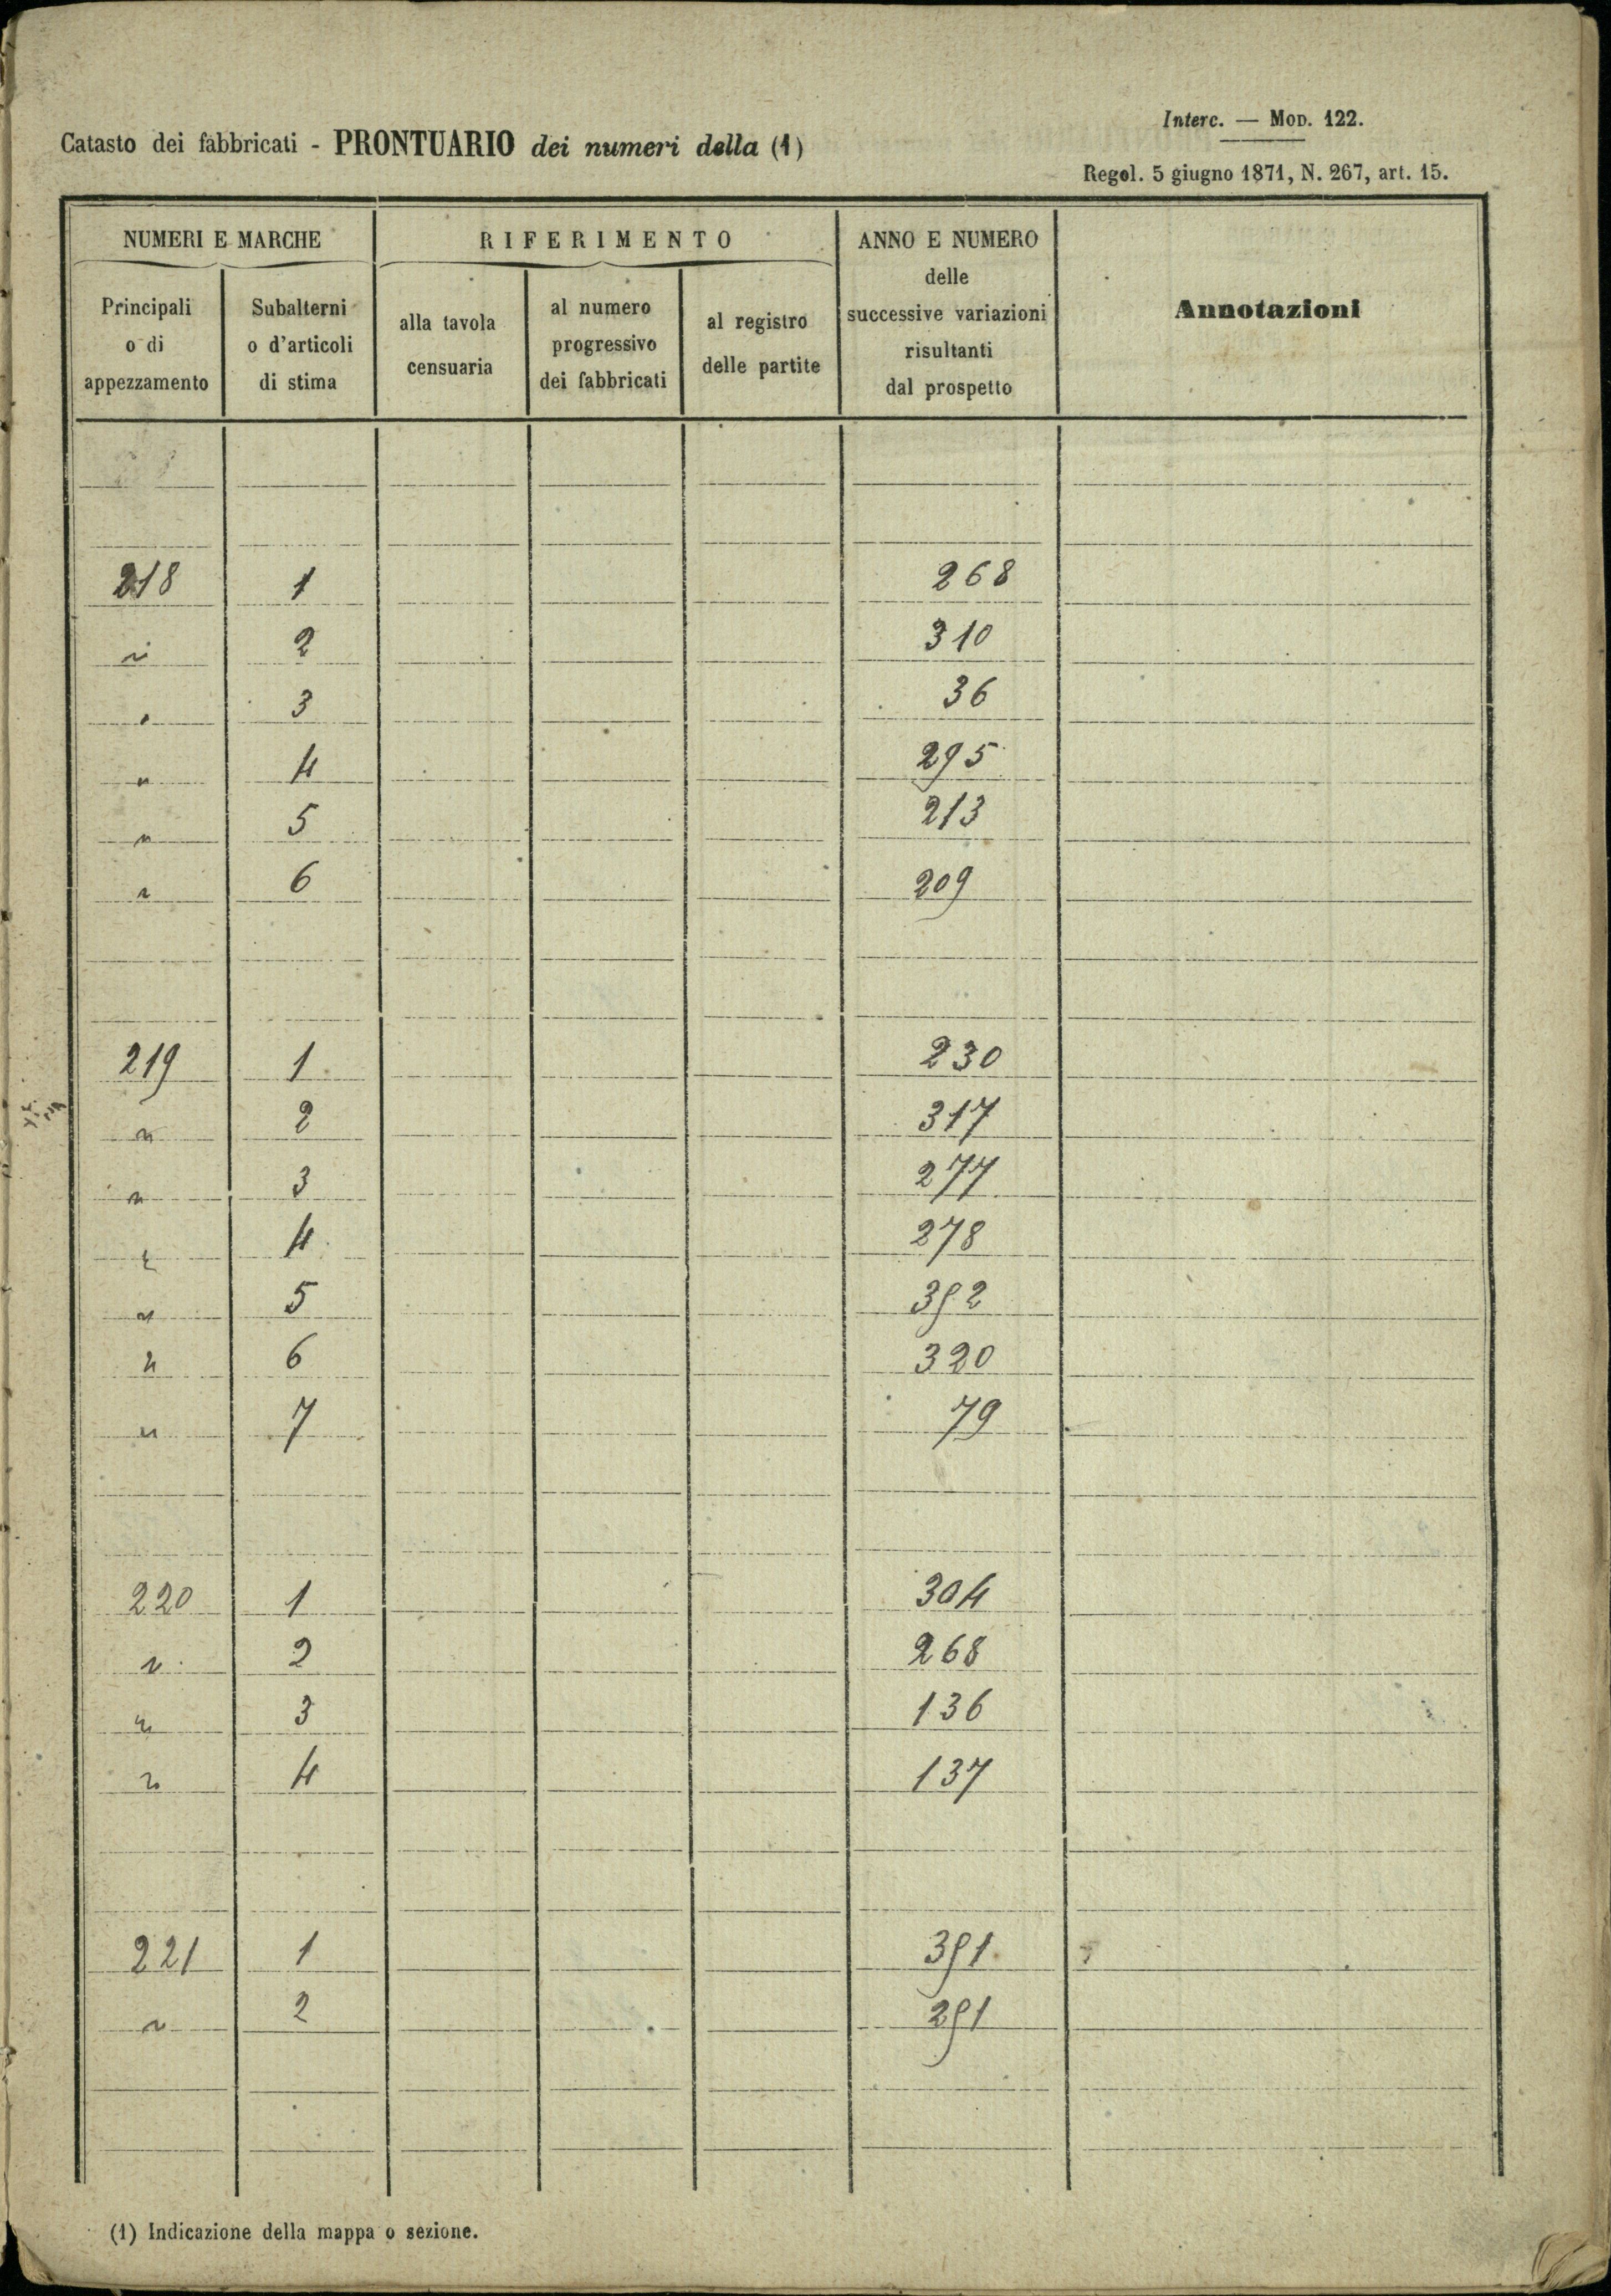 Interc. — Mod. 122.
Catasto dei fabbricati - PRONTUARIO dei numeri della (1)
Regol. 5 giugno 1871, N. 267, art. 15.
NUMERI E MARCHE
Principali o di appezzamento
Subalterni o d'articoli di stima
RIFERIMENTO
alla tavola censuaria
al numero progressivo dei fabbricati
al registro delle partite
ANNO E NUMERO delle successive variazioni risultanti dal prospetto
Annotazioni
218 1 268
" 2 310
" 3 36
" 4 295
" 5 213
" 6 209
219 1 230
" 2 317
" 3 277
" 4 278
" 5 392
" 6 320
" 7 79
220 1 304
" 2 268
" 3 136
" 4 137
221 1 391
" 2 291
(1) Indicazione della mappa o sezione.